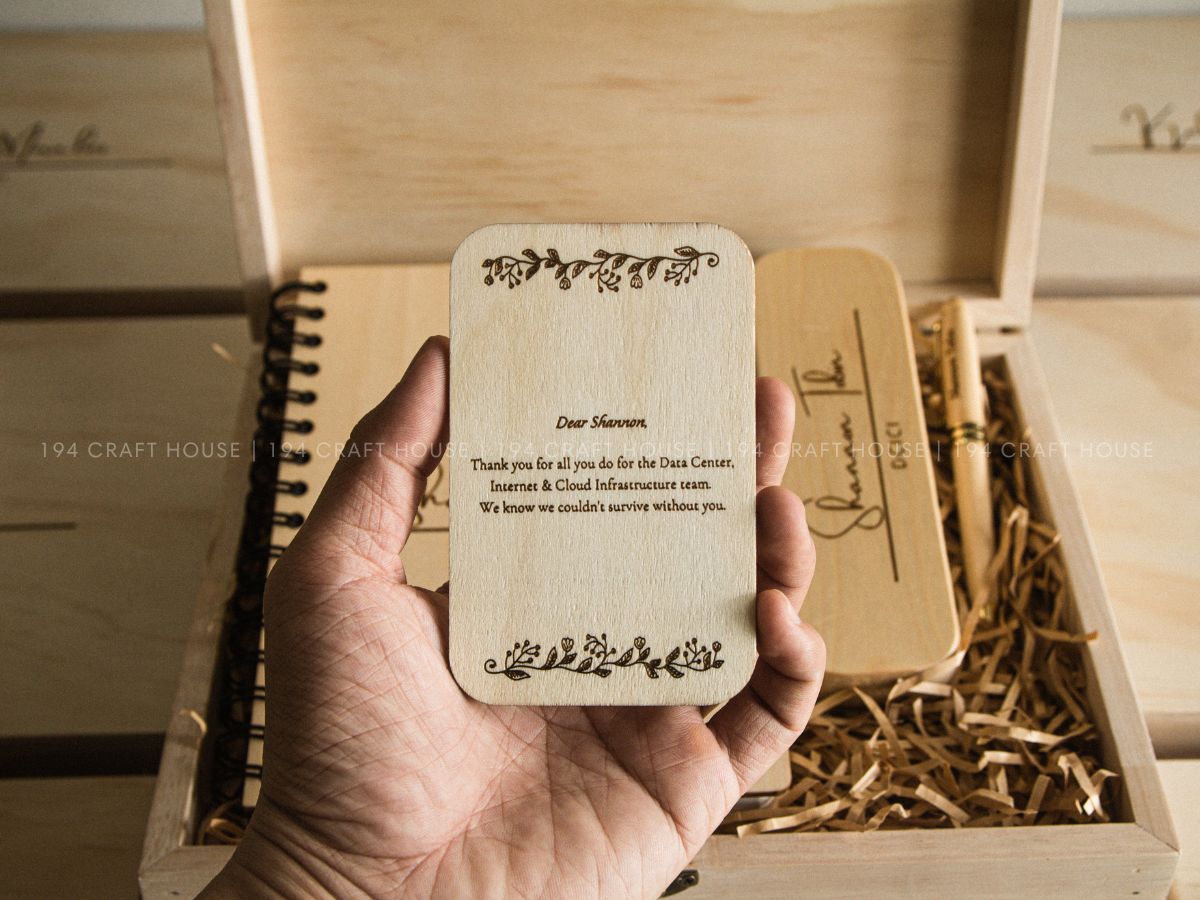 Dear Shannon,
Thank you for all you do for the Data Center,
Internet & Cloud Infrastructure team.
We know we couldn't survive without you.
Shannon
DC ICI
194 CRAFT HOUSE | 194 CRAFT HOUSE | 194 CRAFT HOUSE | 194 CRAFT HOUSE | 194 CRAFT HOUSE